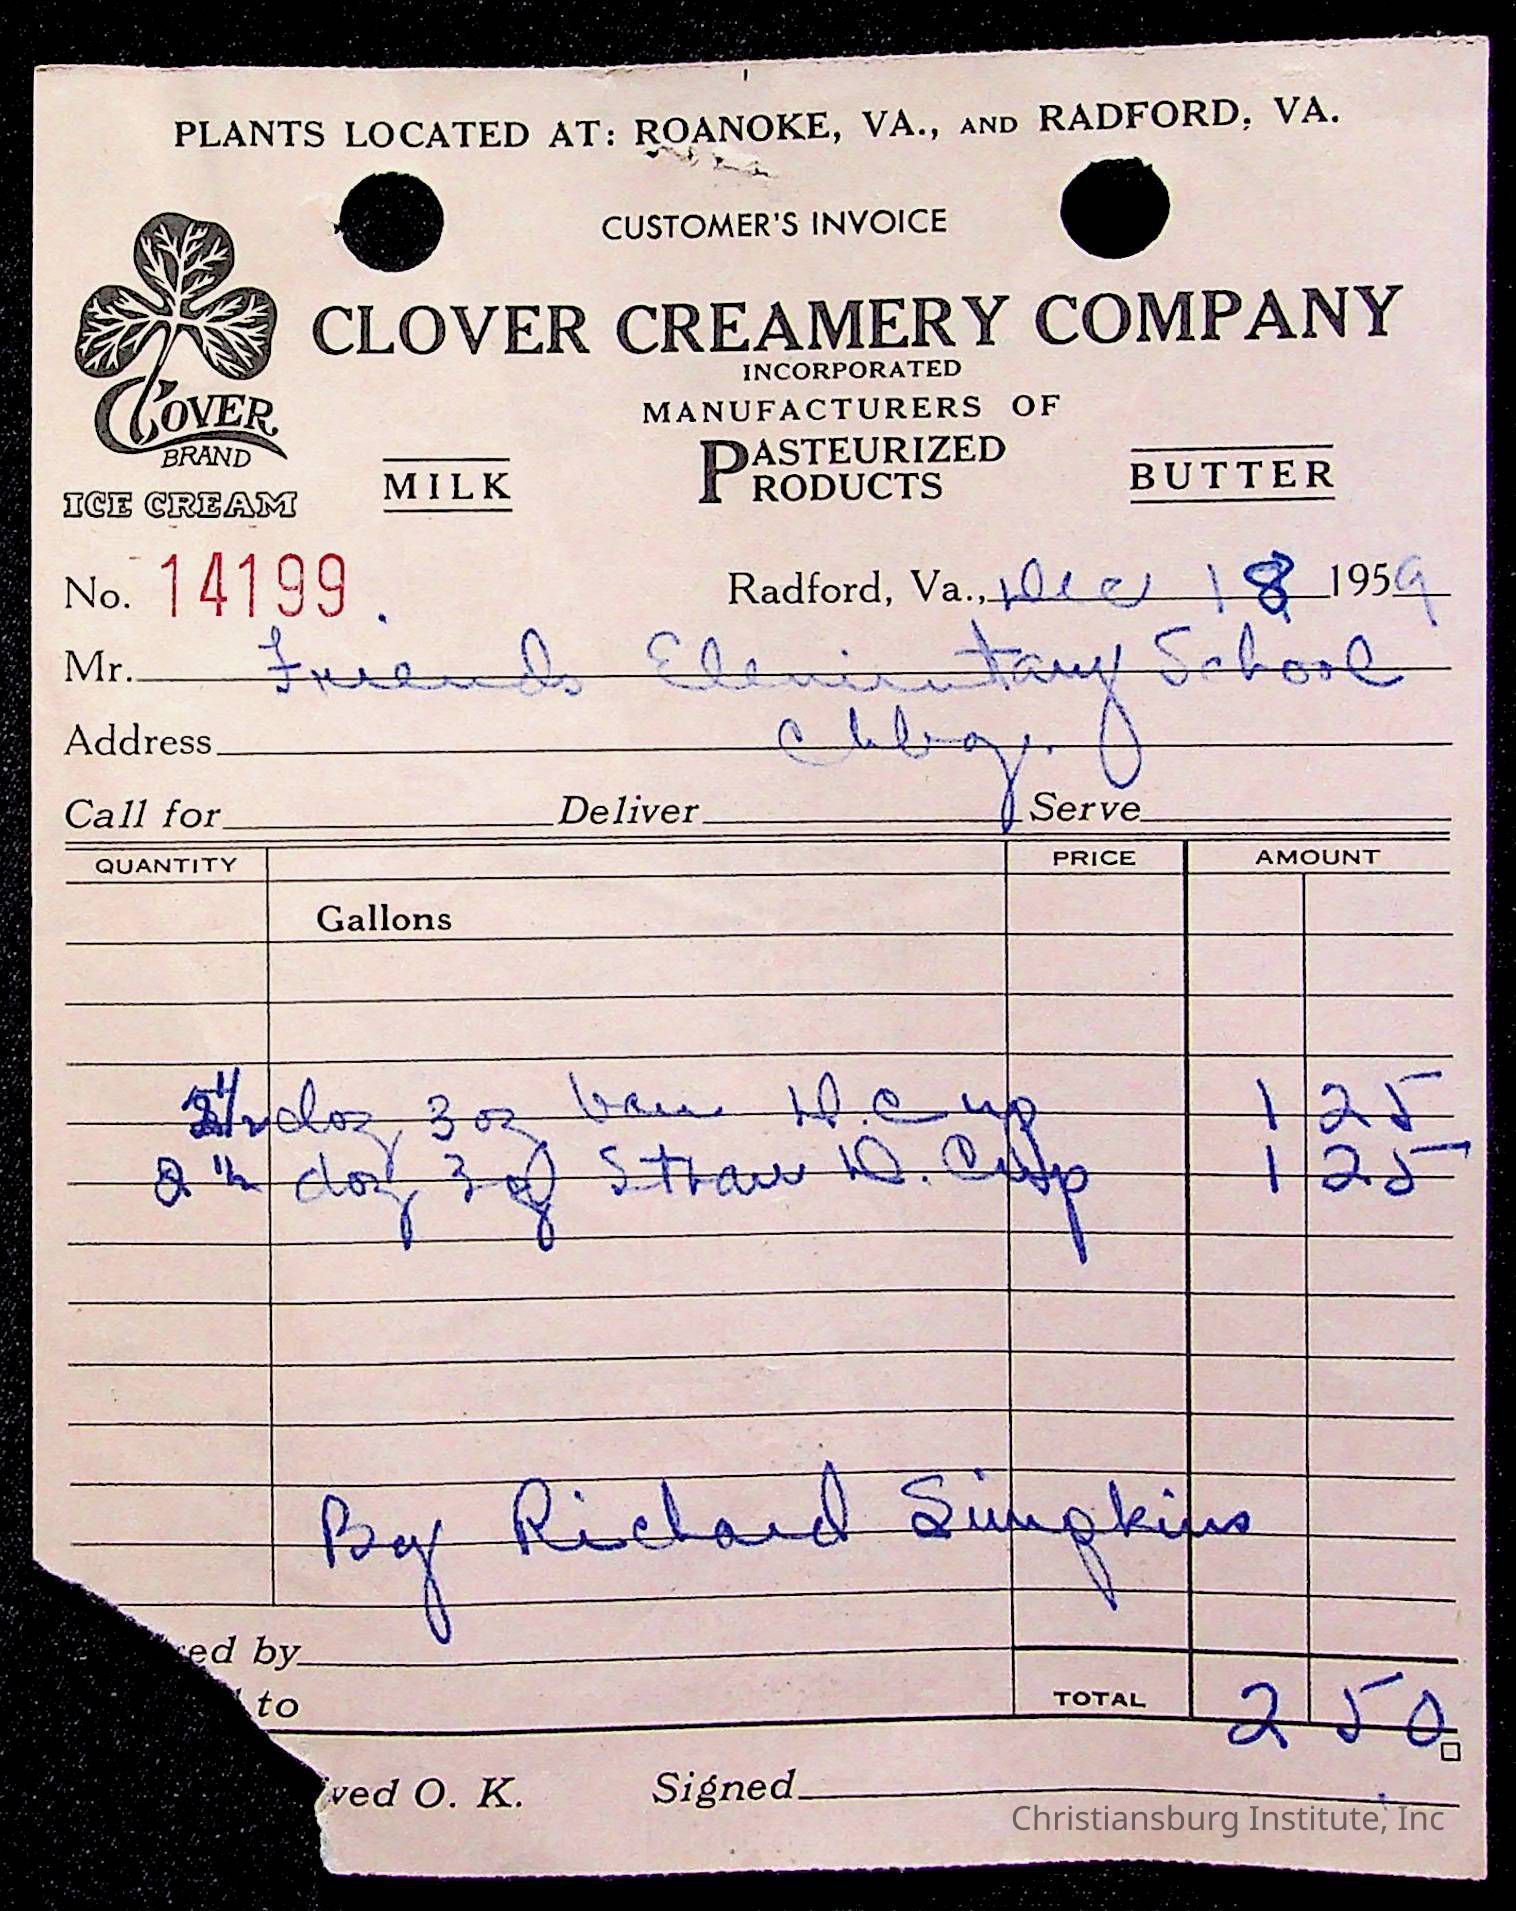 PLANTS LOCATED AT: ROANOKE, VA., AND RADFORD, VA.
CUSTOMER'S INVOICE
CLOVER CREAMERY COMPANY
INCORPORATED
MANUFACTURERS OF
PASTEURIZED
PRODUCTS
CLOVER
BRAND
ICE CREAM
MILK
BUTTER
No. 14199
Radford, Va., Dec 18 1959
Mr. Friends Elementary School
Address Chbg.
Call for Deliver Serve
QUANTITY PRICE AMOUNT
Gallons
2 1/2 doz 3 oz Van D. Cup 1 25
2 1/2 doz 3 oz Straw D. Cup 1 25
By Richard Simpkins
ed by
to
TOTAL 2 50
ved O. K. Signed
Christiansburg Institute, Inc